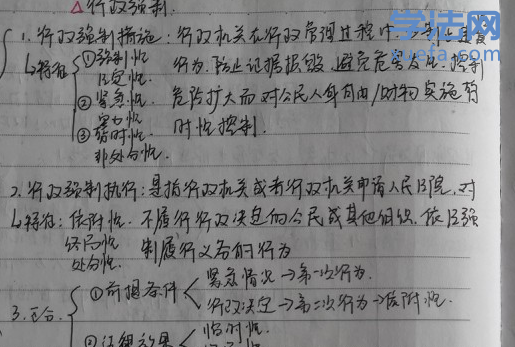 △行政强制.
学法网
xuefa.com
1. 行政强制措施: 行政机关在行政管理过程中
行为. 防止证据损毁. 避免危害发生. 控制
危险扩大而对公民人身自由/财物实施暂
时性控制.
↳特征 ①强制性
法定性.
②紧急性.
③暂时性.
非处分性.
2. 行政强制执行: 是指行政机关或者行政机关申请人民法院. 对
↳特征: 依附性. 不履行行政决定的公民或其他组织. 依法强
终局性 制履行义务的行为
处分性.
3. 区分.
①前提条件
紧急情况→第一次行为.
行政决定→第二次行为→依附性.
②法律效果
临时性.